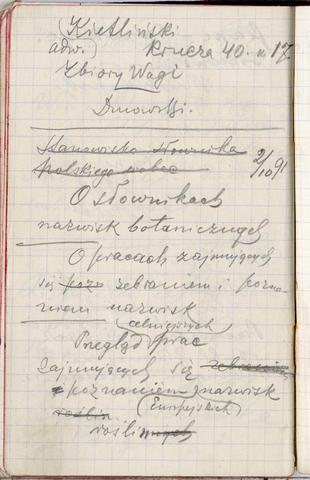 (Kietliński)
adw. Krucza 40. m 17.
Zbiory Wagi
Dmowski.
Stanowisko słownika
polskiego wobec
2/10 91
O słownikach
nazwisk botanicznych
O pracach zajmujących
się zebraniem i pozna-
niem nazwisk
(celniejszych)
Przegląd prac
zajmujących się zebraniem
poznaniem nazwisk
roślin (Europejskich)
roślinnych